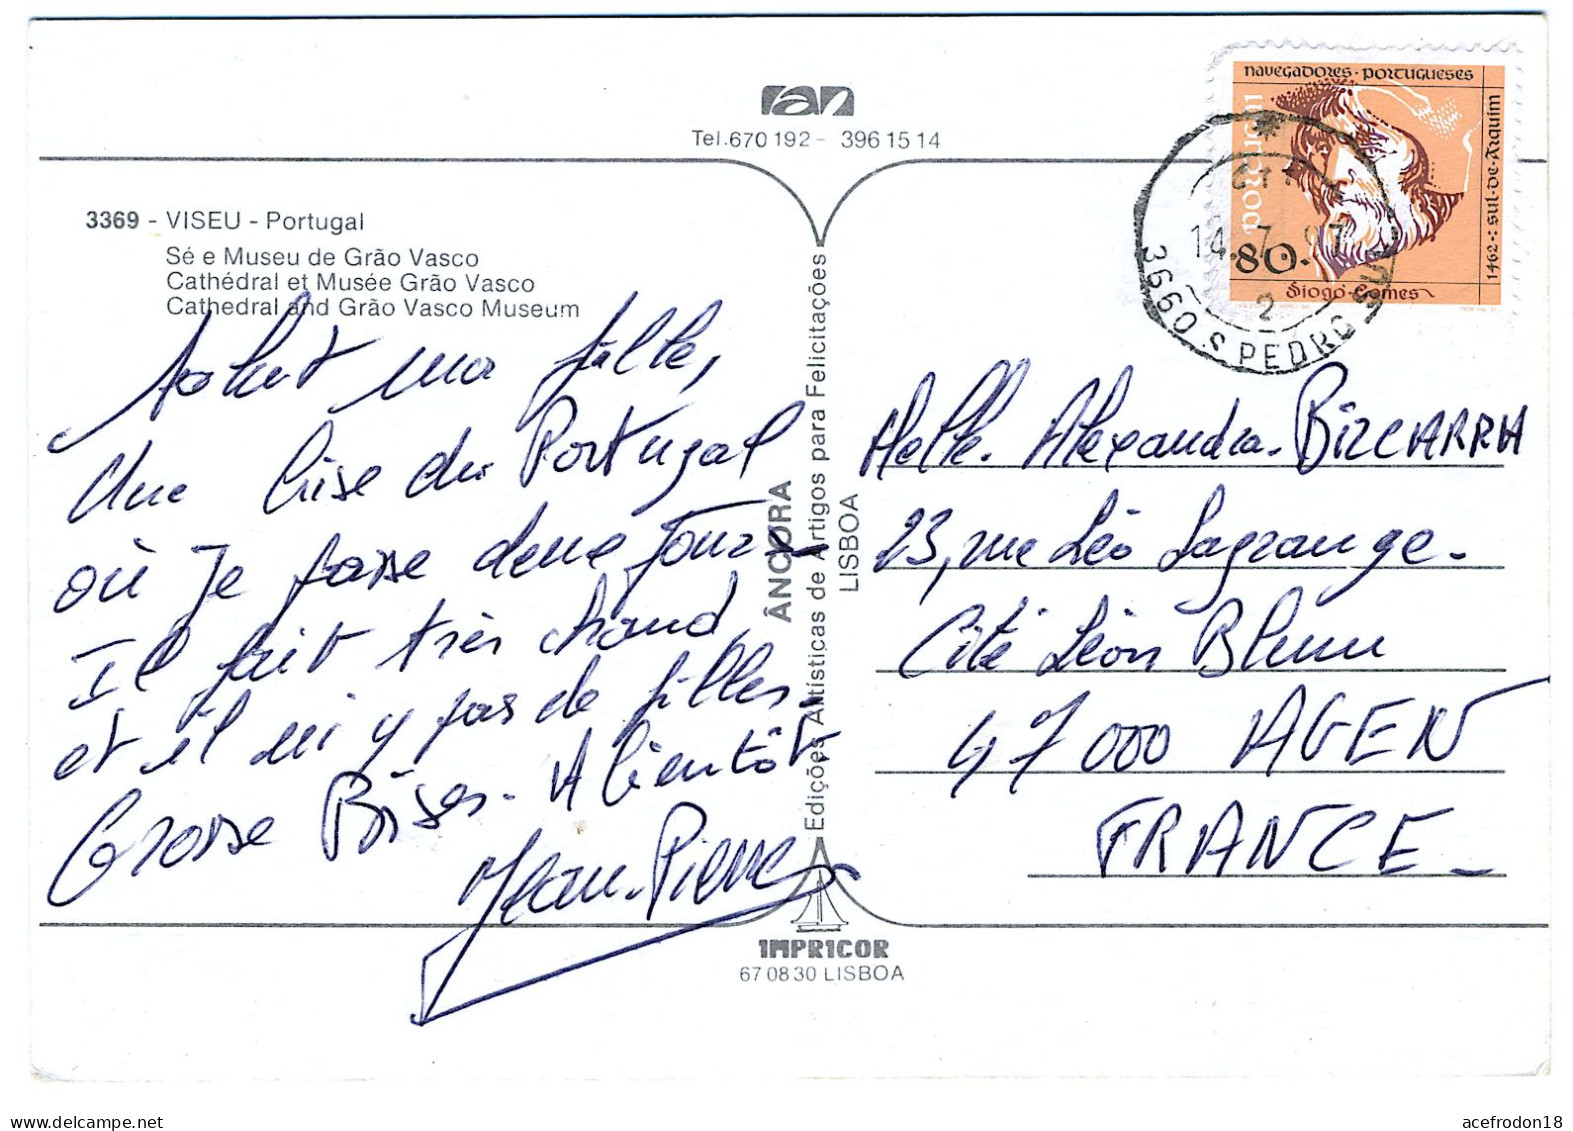 ran
Tel. 670 192 - 396 15 14
3369 - VISEU - Portugal
Sé e Museu de Grão Vasco
Cathédral et Musée Grão Vasco
Cathedral and Grão Vasco Museum
Salut ma fille,
Une bise du Portugal
où je passe deux jours
Il fait très chaud
et il ni y pas de filles.
Grosse Bises. A bientôt
Jean-Pierre
ÂNCORA
Edições Artísticas de Artigos para Felicitações
LISBOA
IMPRICOR
67 08 30 LISBOA
navegadores · portugueses
portugal
1462 : sul · de · Arquim
80.
Diogo Gomes
CTT
14. 7. 97
2
3660 S PEDRO SUL
Melle. Alexandra. BIZCARRA
23, rue Léo Lagrange.
Cité Léon Blum
47 000 AGEN
FRANCE_
acefrodon18